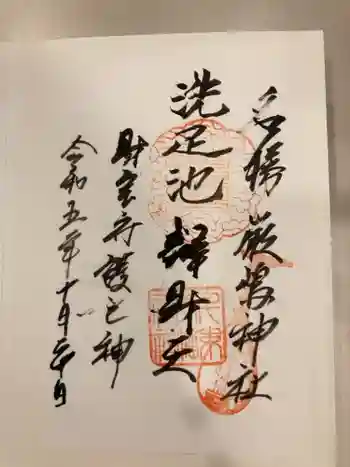 名勝厳島神社
洗足池 辯財天
財宝守護之神
令和五年十月二十日